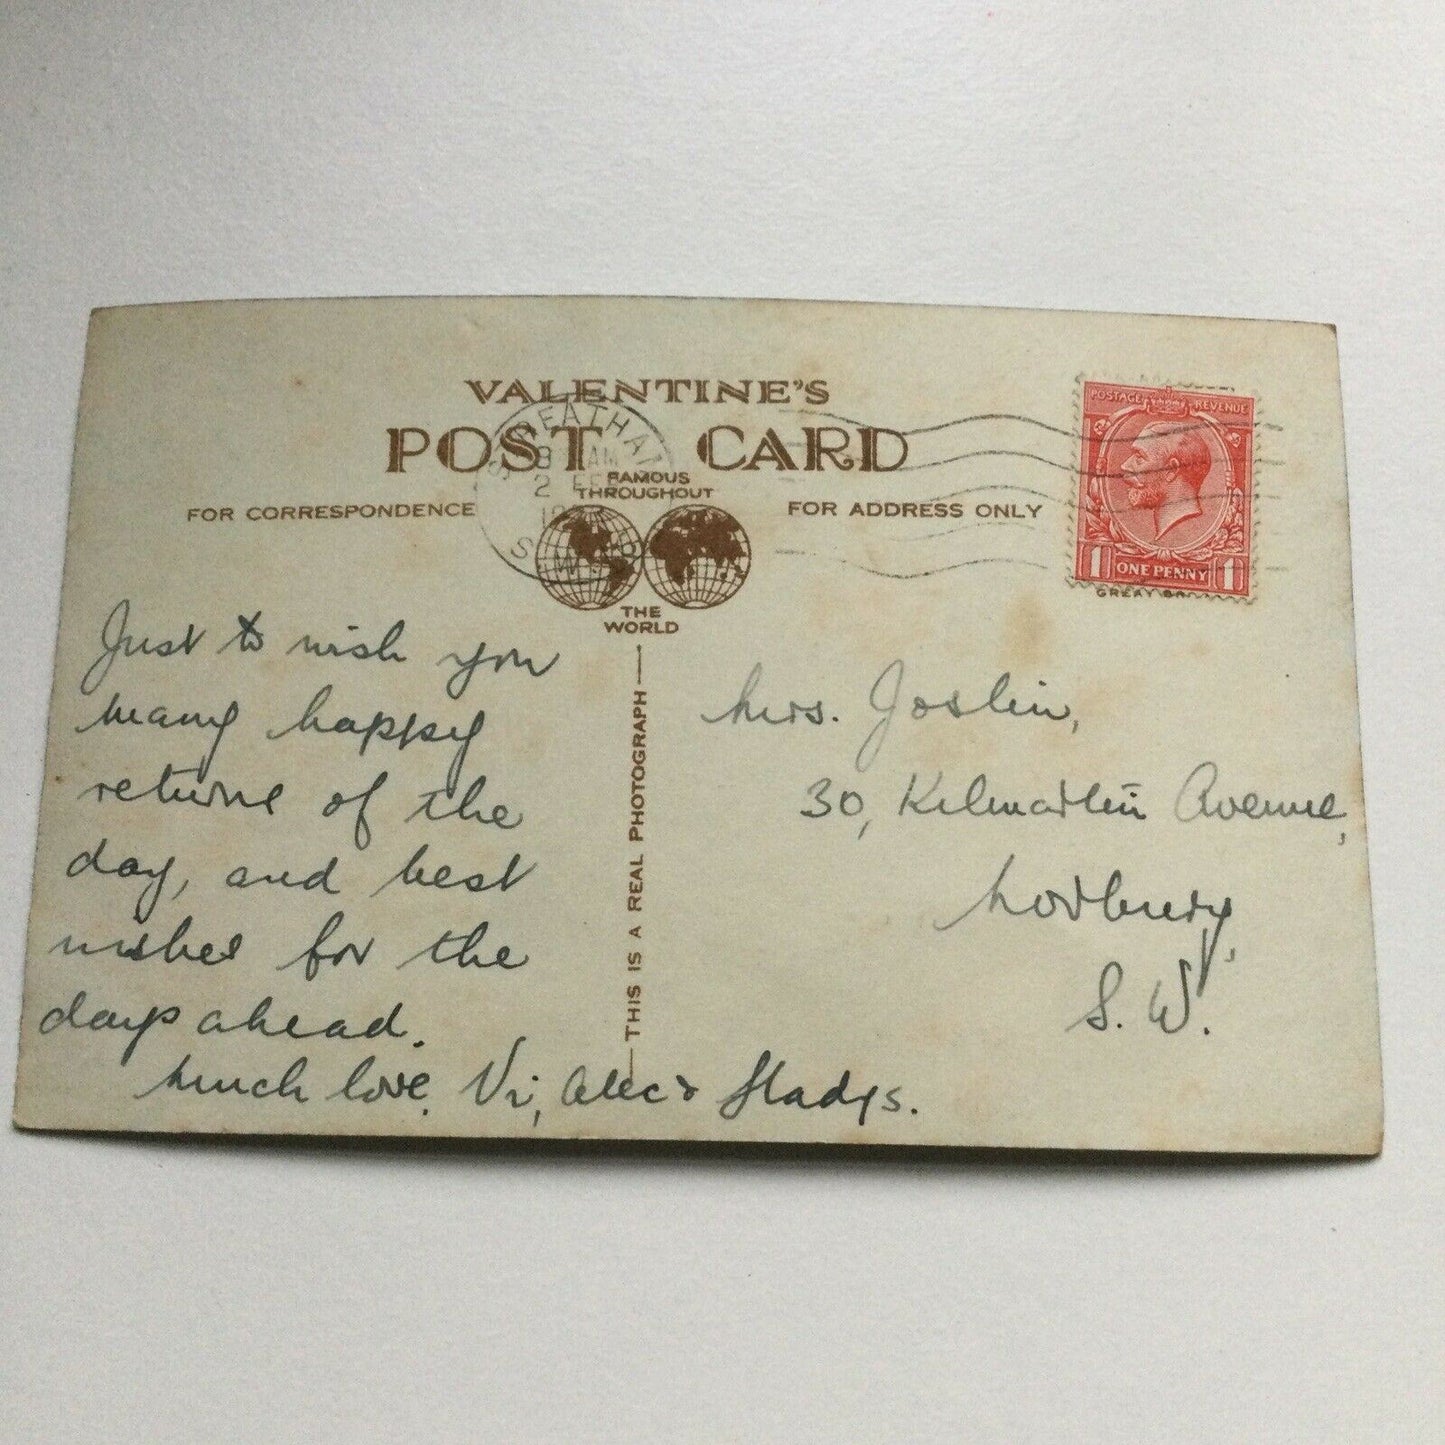 VALENTINE'S
POST CARD
FAMOUS
THROUGHOUT
THE
WORLD
FOR CORRESPONDENCE
FOR ADDRESS ONLY
THIS IS A REAL PHOTOGRAPH
8 AM
2 FE
S.W.
POSTAGE REVENUE
1 ONE PENNY 1
Just to wish you
many happy
returns of the
day, and best
wishes for the
days ahead.
Much love, Vi, Alec & Gladys.
Mrs. Joslin,
30, Kilmartin Avenue,
Norbury,
S.W.